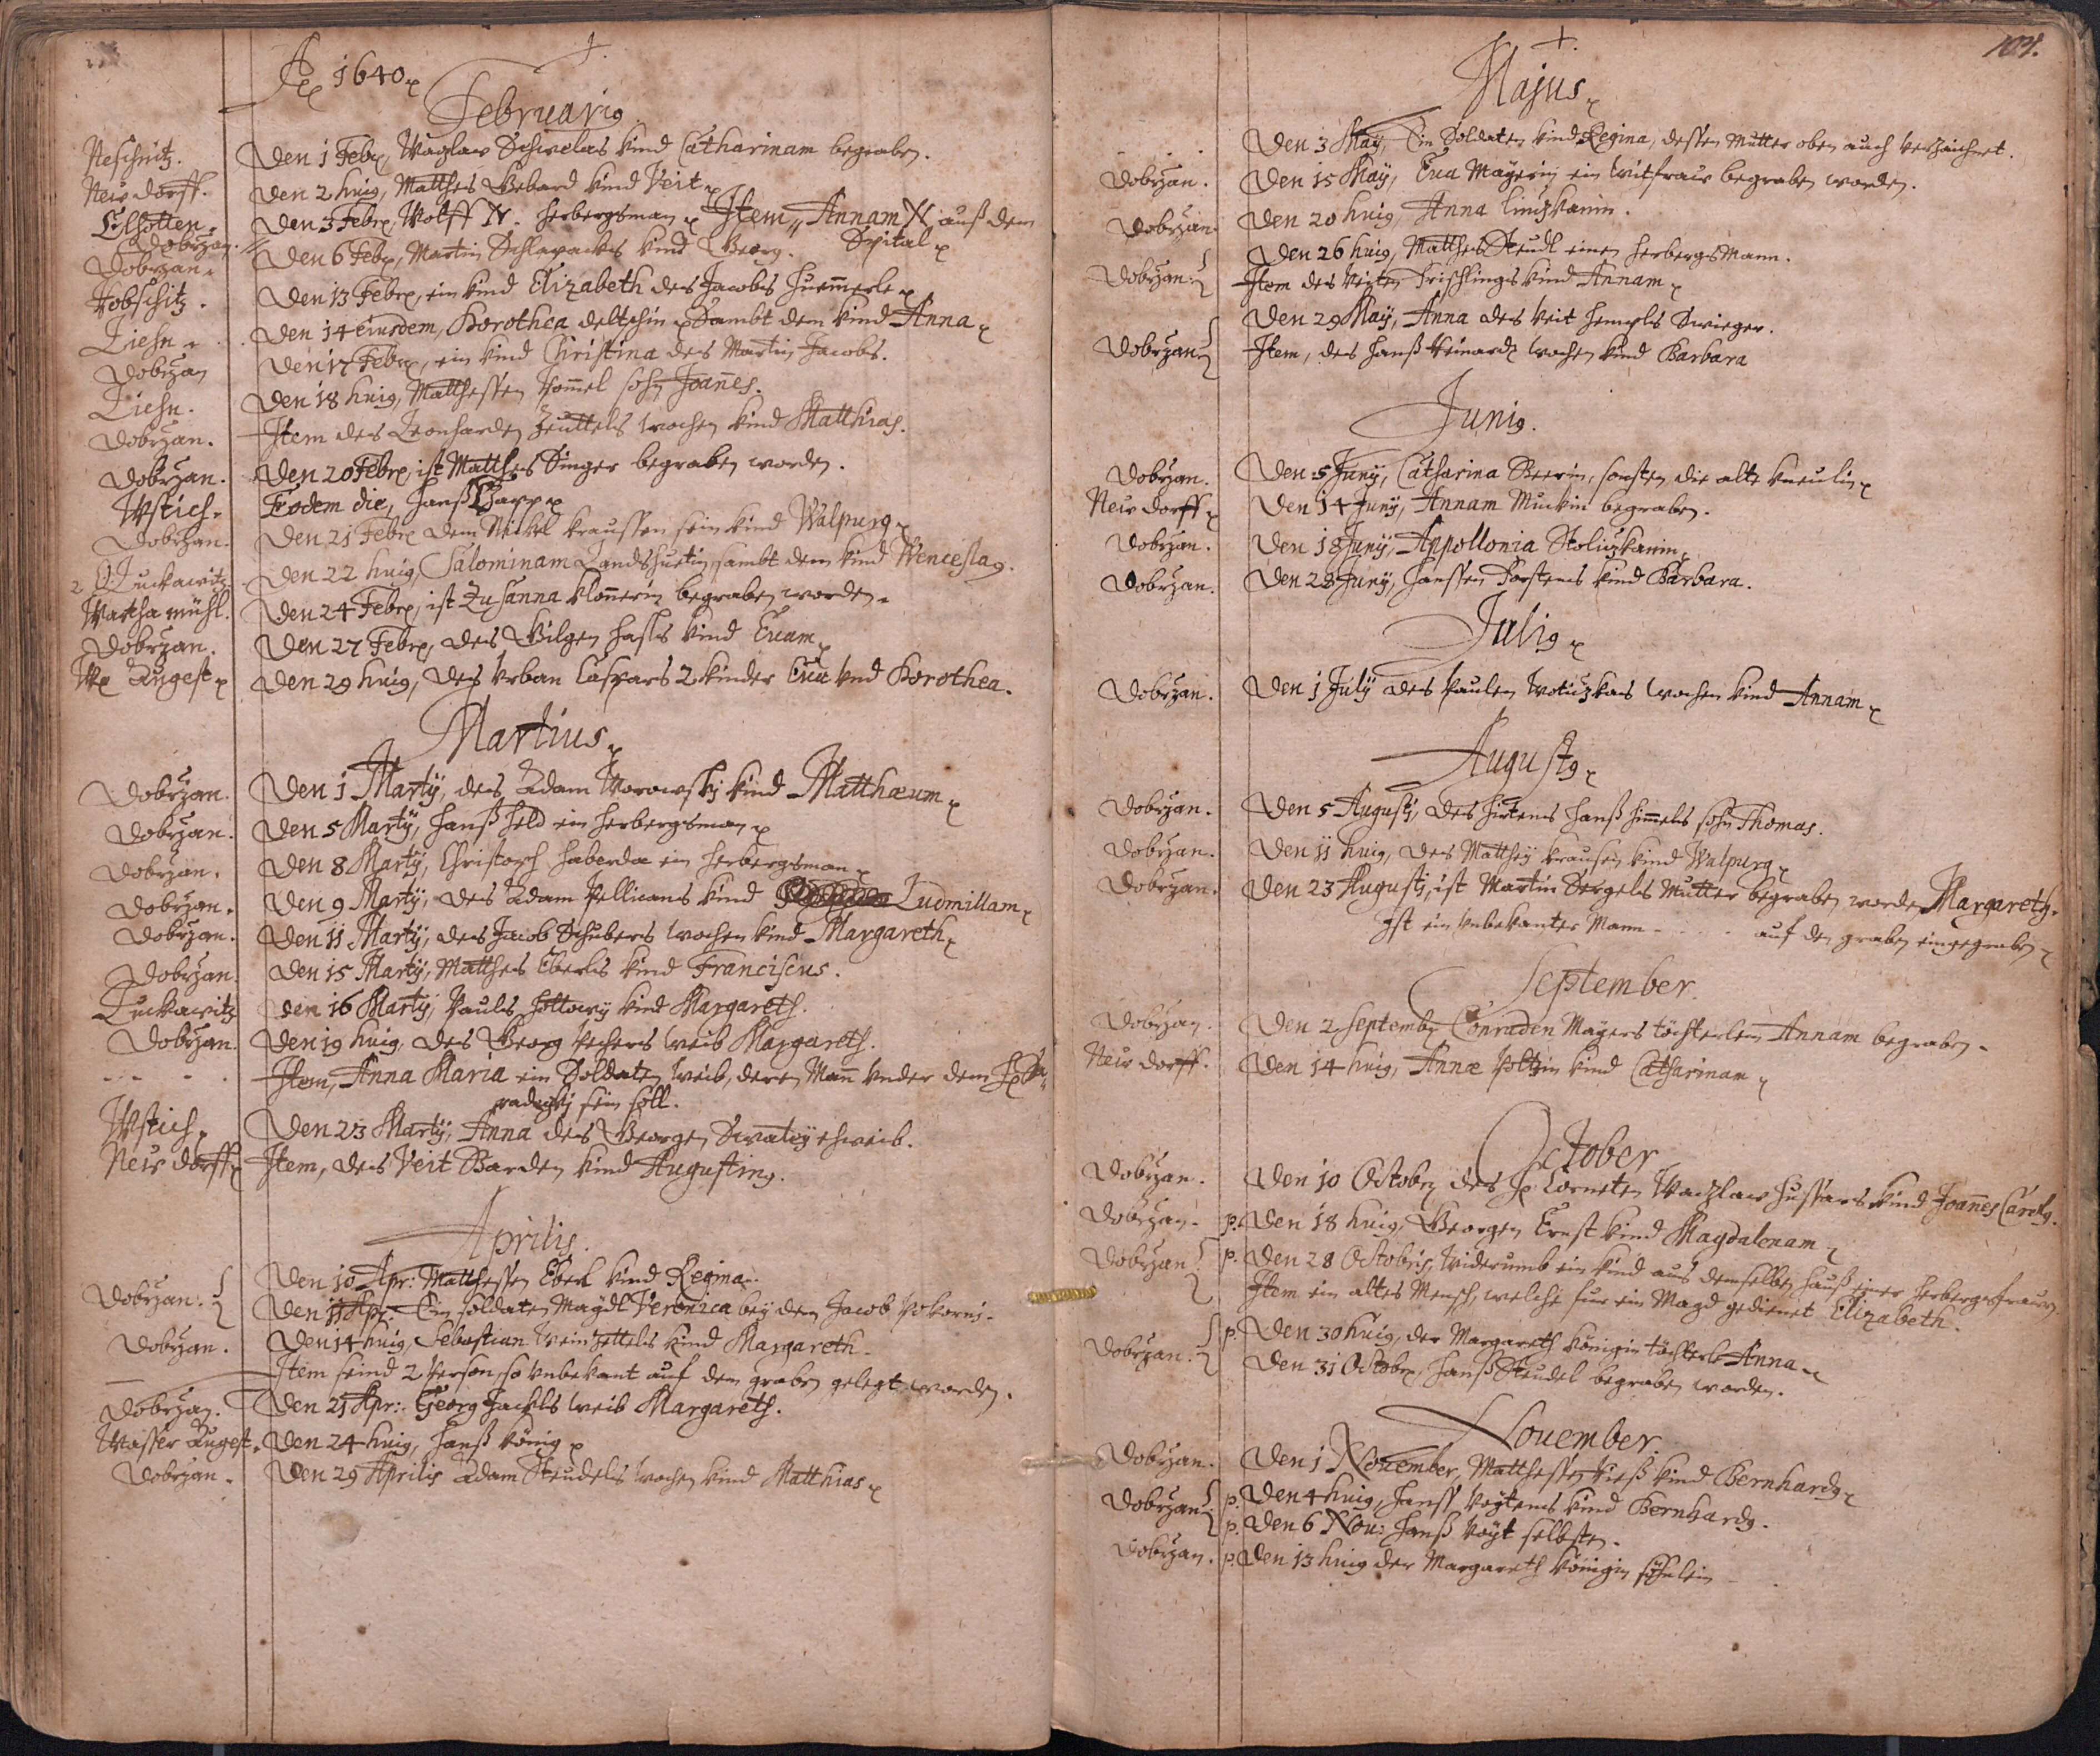 Aō 1640
Februarig
Neschitz. Den 1 Febr, Wazlaw Schwelas kind Catharinam begraben.
New dorff. Den 2 huig, Matthes Gebard kind Veit
Lischotten. Den 3 Febr, Wolff N. Herbergsman Item, Annam N auß dem
Dobrzan. Spital
Dobrzan. Den 6 Febr, Martin Schlapacks kind Georg.
Hobschitz. Den 13 Febr, ein kind Elizabeth des Jacobs Huemerle
Liehn. Den 14 eiusdem, Dorothea deltschin Sambt dem kind Anna
Dobrzan Den 17 Febr, ein kind Christina des Martin Jacobs.
Liehn. Den 18 huig, Matthessen Homel sohn Joanes.
Dobrzan. Item des Leonharden Zeuttels wochen kind Matthias.
Dobrzan. Den 20 Febr ist Matthes Singer begraben worden.
Wstich. Eodem die, Hanß
Dobrzan. Den 21 Febr dem Nickel Kraussen sein kind Walpurg
2 Luckawitz Den 22 huig, Salominam Landshuetin sambt dem kind Wenceslag.
Wartha mühl. Den 24 Febr, ist Zusanna Klonerin begraben worden.
Dobrzan. Den 27 Febr, des Gilgen Hasls kind Euam
W Augest Den 29 huig, des Urban Caspars 2 kinder Eua und Dorothea.
Martius
Dobrzan. Den 1 Martij, des Adam Worowsky kind Matthæum
Dobrzan. Den 5 Martij, Hanß Held ein Herbergsman
Dobrzan. Den 8 Martij, Christoph Haberda ein Herbergsman
Dobrzan. Den 9 Martij, des Adam Pellicans kind Ludmillam
Dobrzan. Den 11 Martij, des Jacob Schubers wochen kind Margareth
Dobrzan. Den 15 Martij, Matthes Eberls kind Franciscus.
Luckawitz Den 16 Martij, Pauls Hollowy kind Margareth.
Dobrzan. Den 19 huig, des Georg Pechers weib Margareth.
Item, Anna Maria ein Soldaten weib, deren Man under dem H
radezky sein soll.
Wstich Den 23 Martij, Anna des Georgen Swatoy eheweib.
New dorff Item, des Veit Barden kind Augusting.
Aprilis.
Dobrzan. Den 10 Apr: Matthessen Eberl kind Regina.
Den 11 Apr: Ein soldaten Maydl Veronica bey dem Jacob Pokorni.
Dobrzan. Den 14 huig, Sebastian Weinzettels kind Margareth
Item seind 2 Person so unbekant auf dem graben gelegt worden.
Dobrzan. Den 21 Apr: Georg Jackls weib Margareth.
Wasser Augest. Den 24 huig, Hanß König
Dobrzan. Den 29 Aprilis Adam Steudels wochen kind Matthias
104.
Majus
Den 3 May, Ein Soldaten kind Regina, dessen Mutter oben auch verzaichnet.
Dobrzan. Den 15 May, Eua Mayerin ein witfraw begraben worden.
Dobrzan Den 20 huig, Anna Linzkanin.
Den 26 huig, Matthes Steudl einen Herbergs Mann.
Dobrzan. Item des Veiten Frischlings kind Annam
Den 29 May, Anna des Veit Hempls Swieger.
Dobrzan Item, des Hanß Heinardt wochen kind Barbara
Junig.
Dobrzan. Den 5 Junij, Catharina Beerin, sonsten die alte Kneulin
New dorff Den 14 Junij, Annam Munkin begraben.
Dobrzan. Den 18 Junij, Appollonia Stoliczkanin
Dobrzan. Den 28 Junij, Hanssen Forstens kind Barbara.
Julig
Dobrzan. Den 1 July des Paulen Woticzkas wochen kind Annam
Augustg
Dobrzan. Den 5 Augusti, des hirtens Hanß Himels sohn Thomas.
Dobrzan. Den 11 huig, des Matthej Krausen kind Walpurg
Dobrzan. Den 23 Augusti, ist Martin Sergels Mutter begraben worden Margareth.
Ist ein unbekanter Mann - - - - auf den graben eingegraben
September.
Dobrzan. Den 2 Septemb Conraden Mayers töchterlein Annam begraben.
New dorff. Den 14 huig, Annæ Poltzin kind Catharinam
October
Dobrzan. Den 10 Octob des H Corneten Wazlaw Hussars kind Joanes Carolg.
Dobrzan. p. Den 18 huig, Georgen Ernst kind Magdalenam
Dobrzan. p. Den 28 Octobris, widerumb ein kind aus demselben Hauß einer Herbergsfrauen
Item ein altes Mensch, welche fur ein Magd gedienet Elizabeth.
Dobrzan. p. Den 30 huig, der Margareth Königin töchterle Anna
Den 31 Octobr, Hanß Steudel begraben worden.
Nouember.
Dobrzan. Den 1 Nouember, Matthessen Kieß kind Bernhardg
Dobrzan p. Den 4 huig, Hanß Voytens kind Bernhardg.
p. Den 6 Nou: Hanß Voyt selbsten.
Dobrzan. p. Den 13 huig der Margareth Königin söhnlein